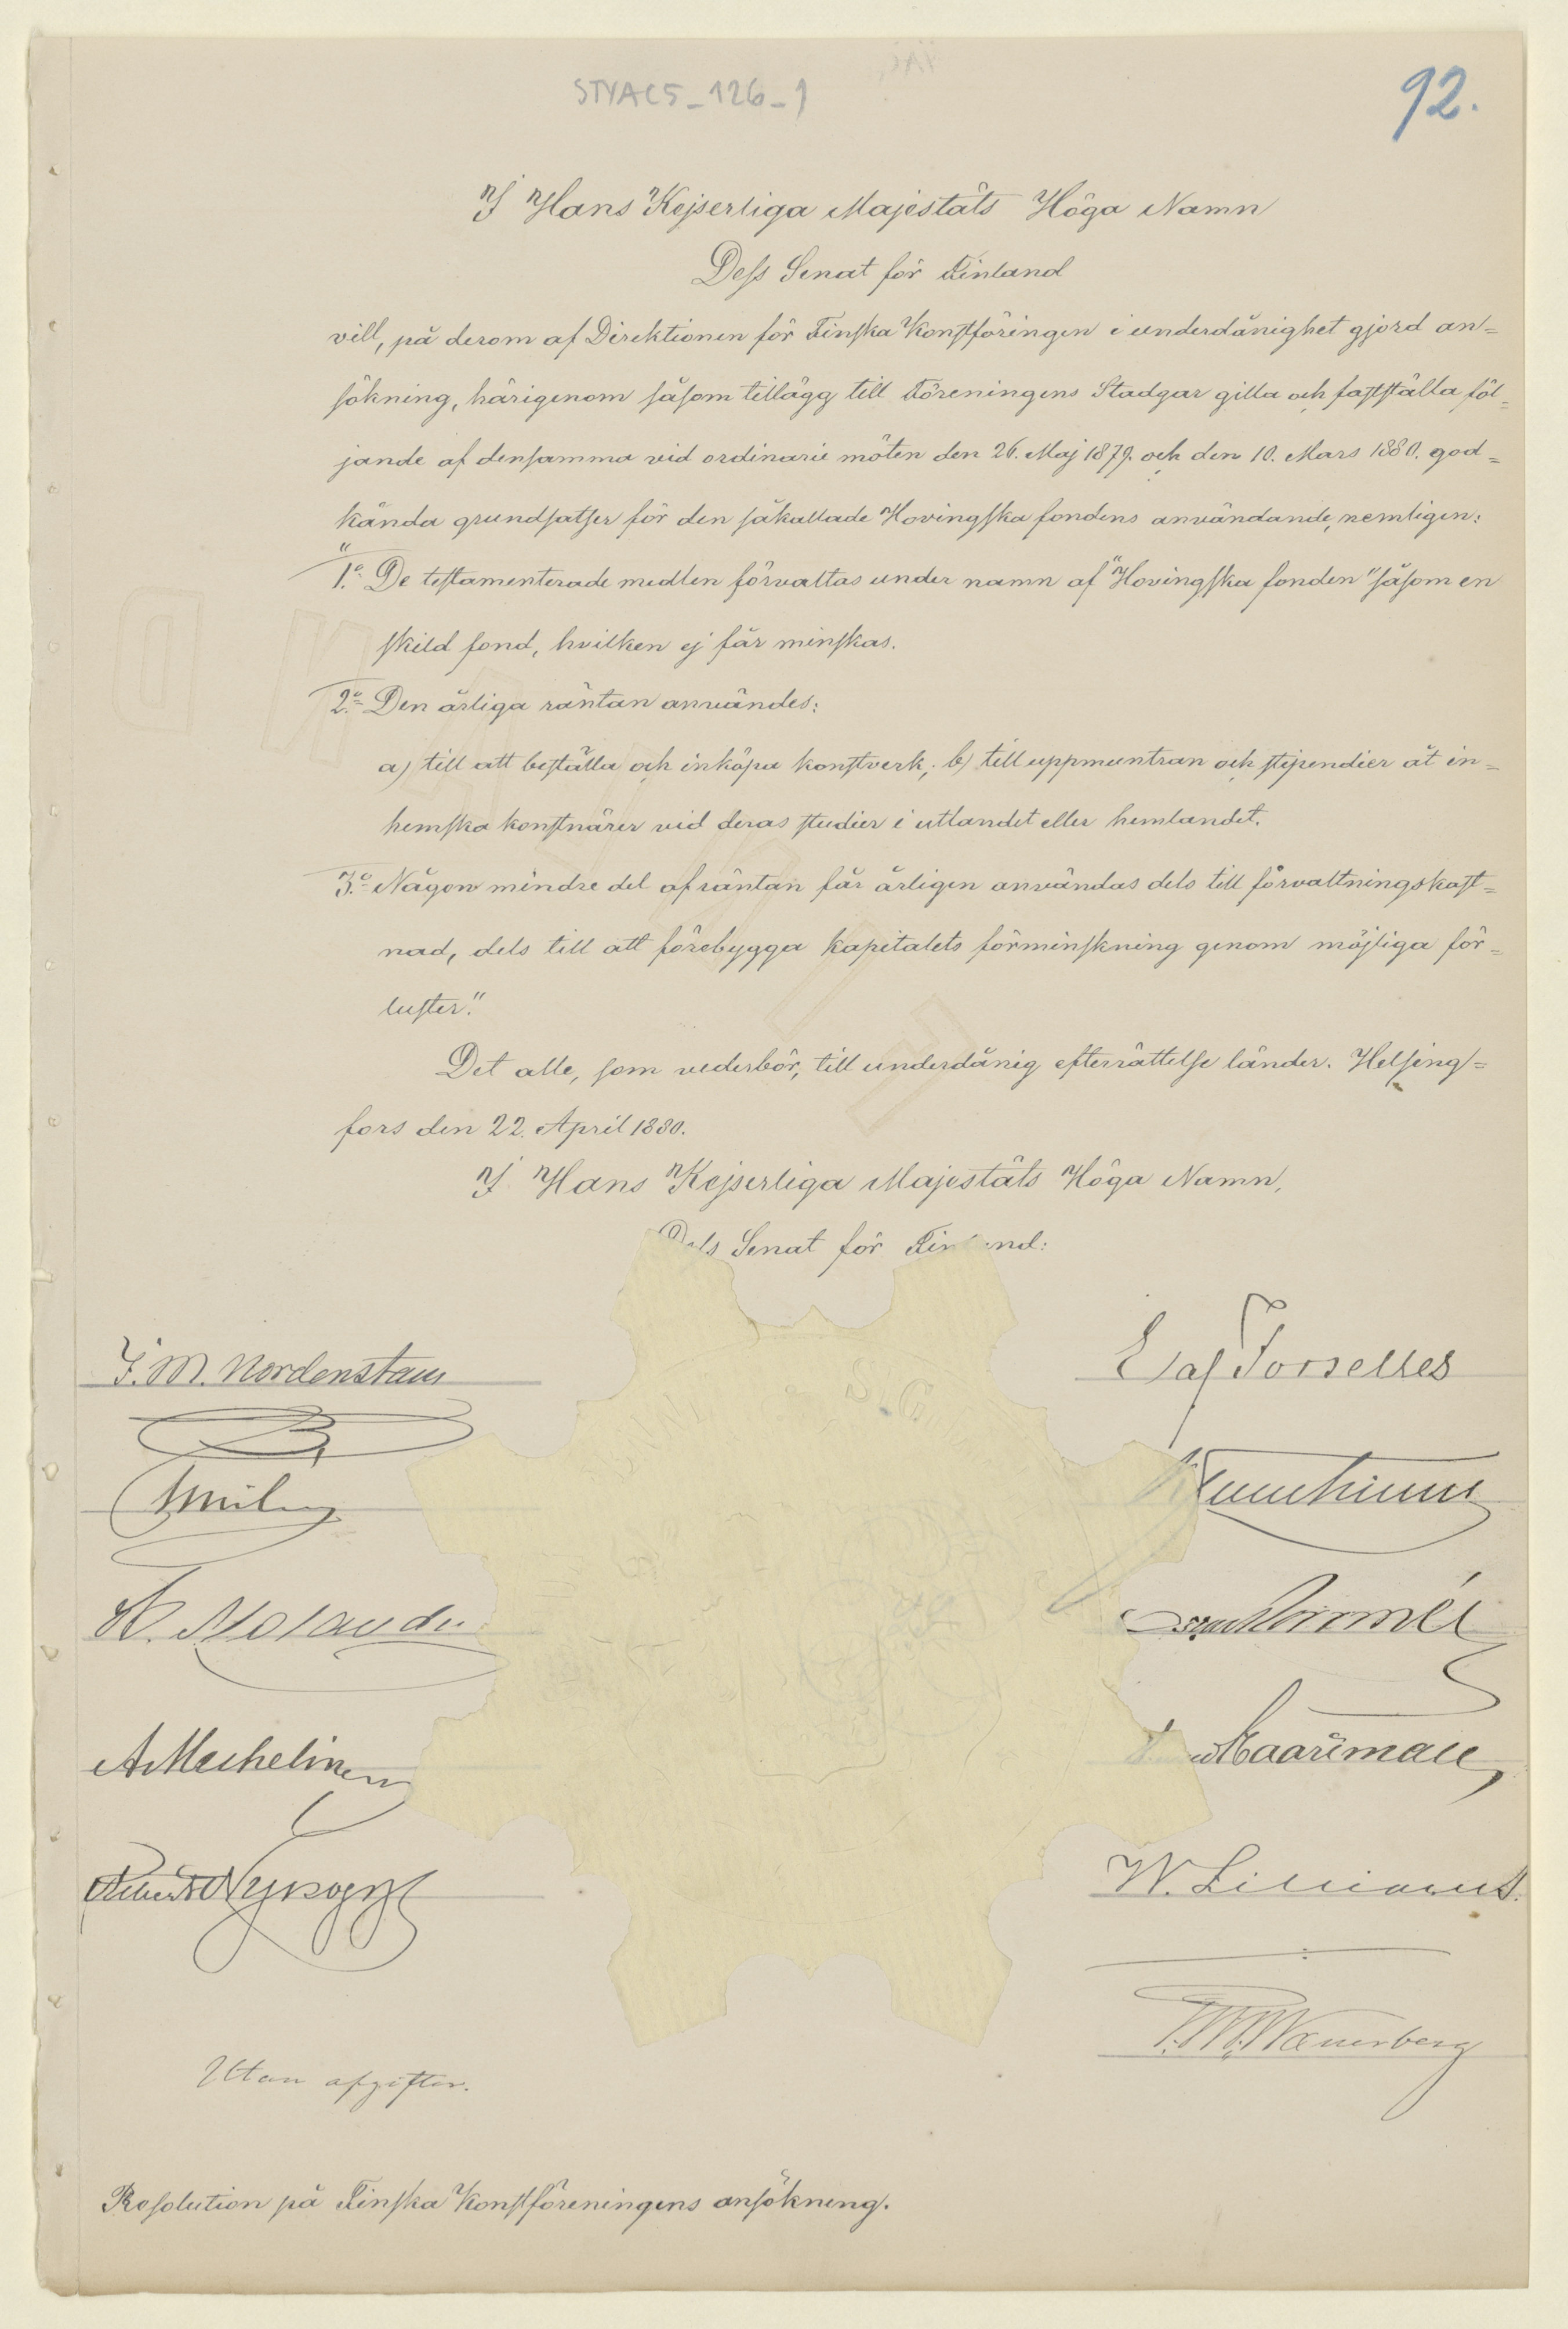 STYAC5_126_1
92.
I Hans Kejserliga Majestäts Höga Namn
Dess Senat för Finland
vill, på derom af Direktionen för Finska Konstföringen i underdånighet gjord an=
sökning, härigenom såsom tillägg till Föreningens Stadgar gilla och fastställa föl=
jande af densamma vid ordinarie möten den 26. Maj 1879. och den 10. Mars 1880. god=
kända grundsatser för den såkallade Hovingska fondens användande, nemligen:
"1:o De testamenterade medlen förvaltas under namn af "Hovingska fonden" såsom en
skild fond, hvilken ej får minskas.
2:o Den årliga räntan användes:
a) till att beställa och inköpa konstverk; b) till uppmuntran och stipendier åt in=
hemska konstnärer vid deras studier i utlandet eller hemlandet.
3:o Någon mindre del af räntan får årligen användas dels till förvaltningskost=
nad, dels till att förebygga kapitalets förminskning genom möjliga för=
luster."
Det alle, som vederbör, till underdånig efterrättelse länder. Helsing=
fors den 22. April 1880.
I Hans Kejserliga Majestäts Höga Namn,
Dess Senat för Finland:
J. M. Nordenstam
E af Forselles
K. Molander
A Mechelin
W. Lilliarus
Utan afgifter.
Resolution på Finska Konstföreningens ansökning.